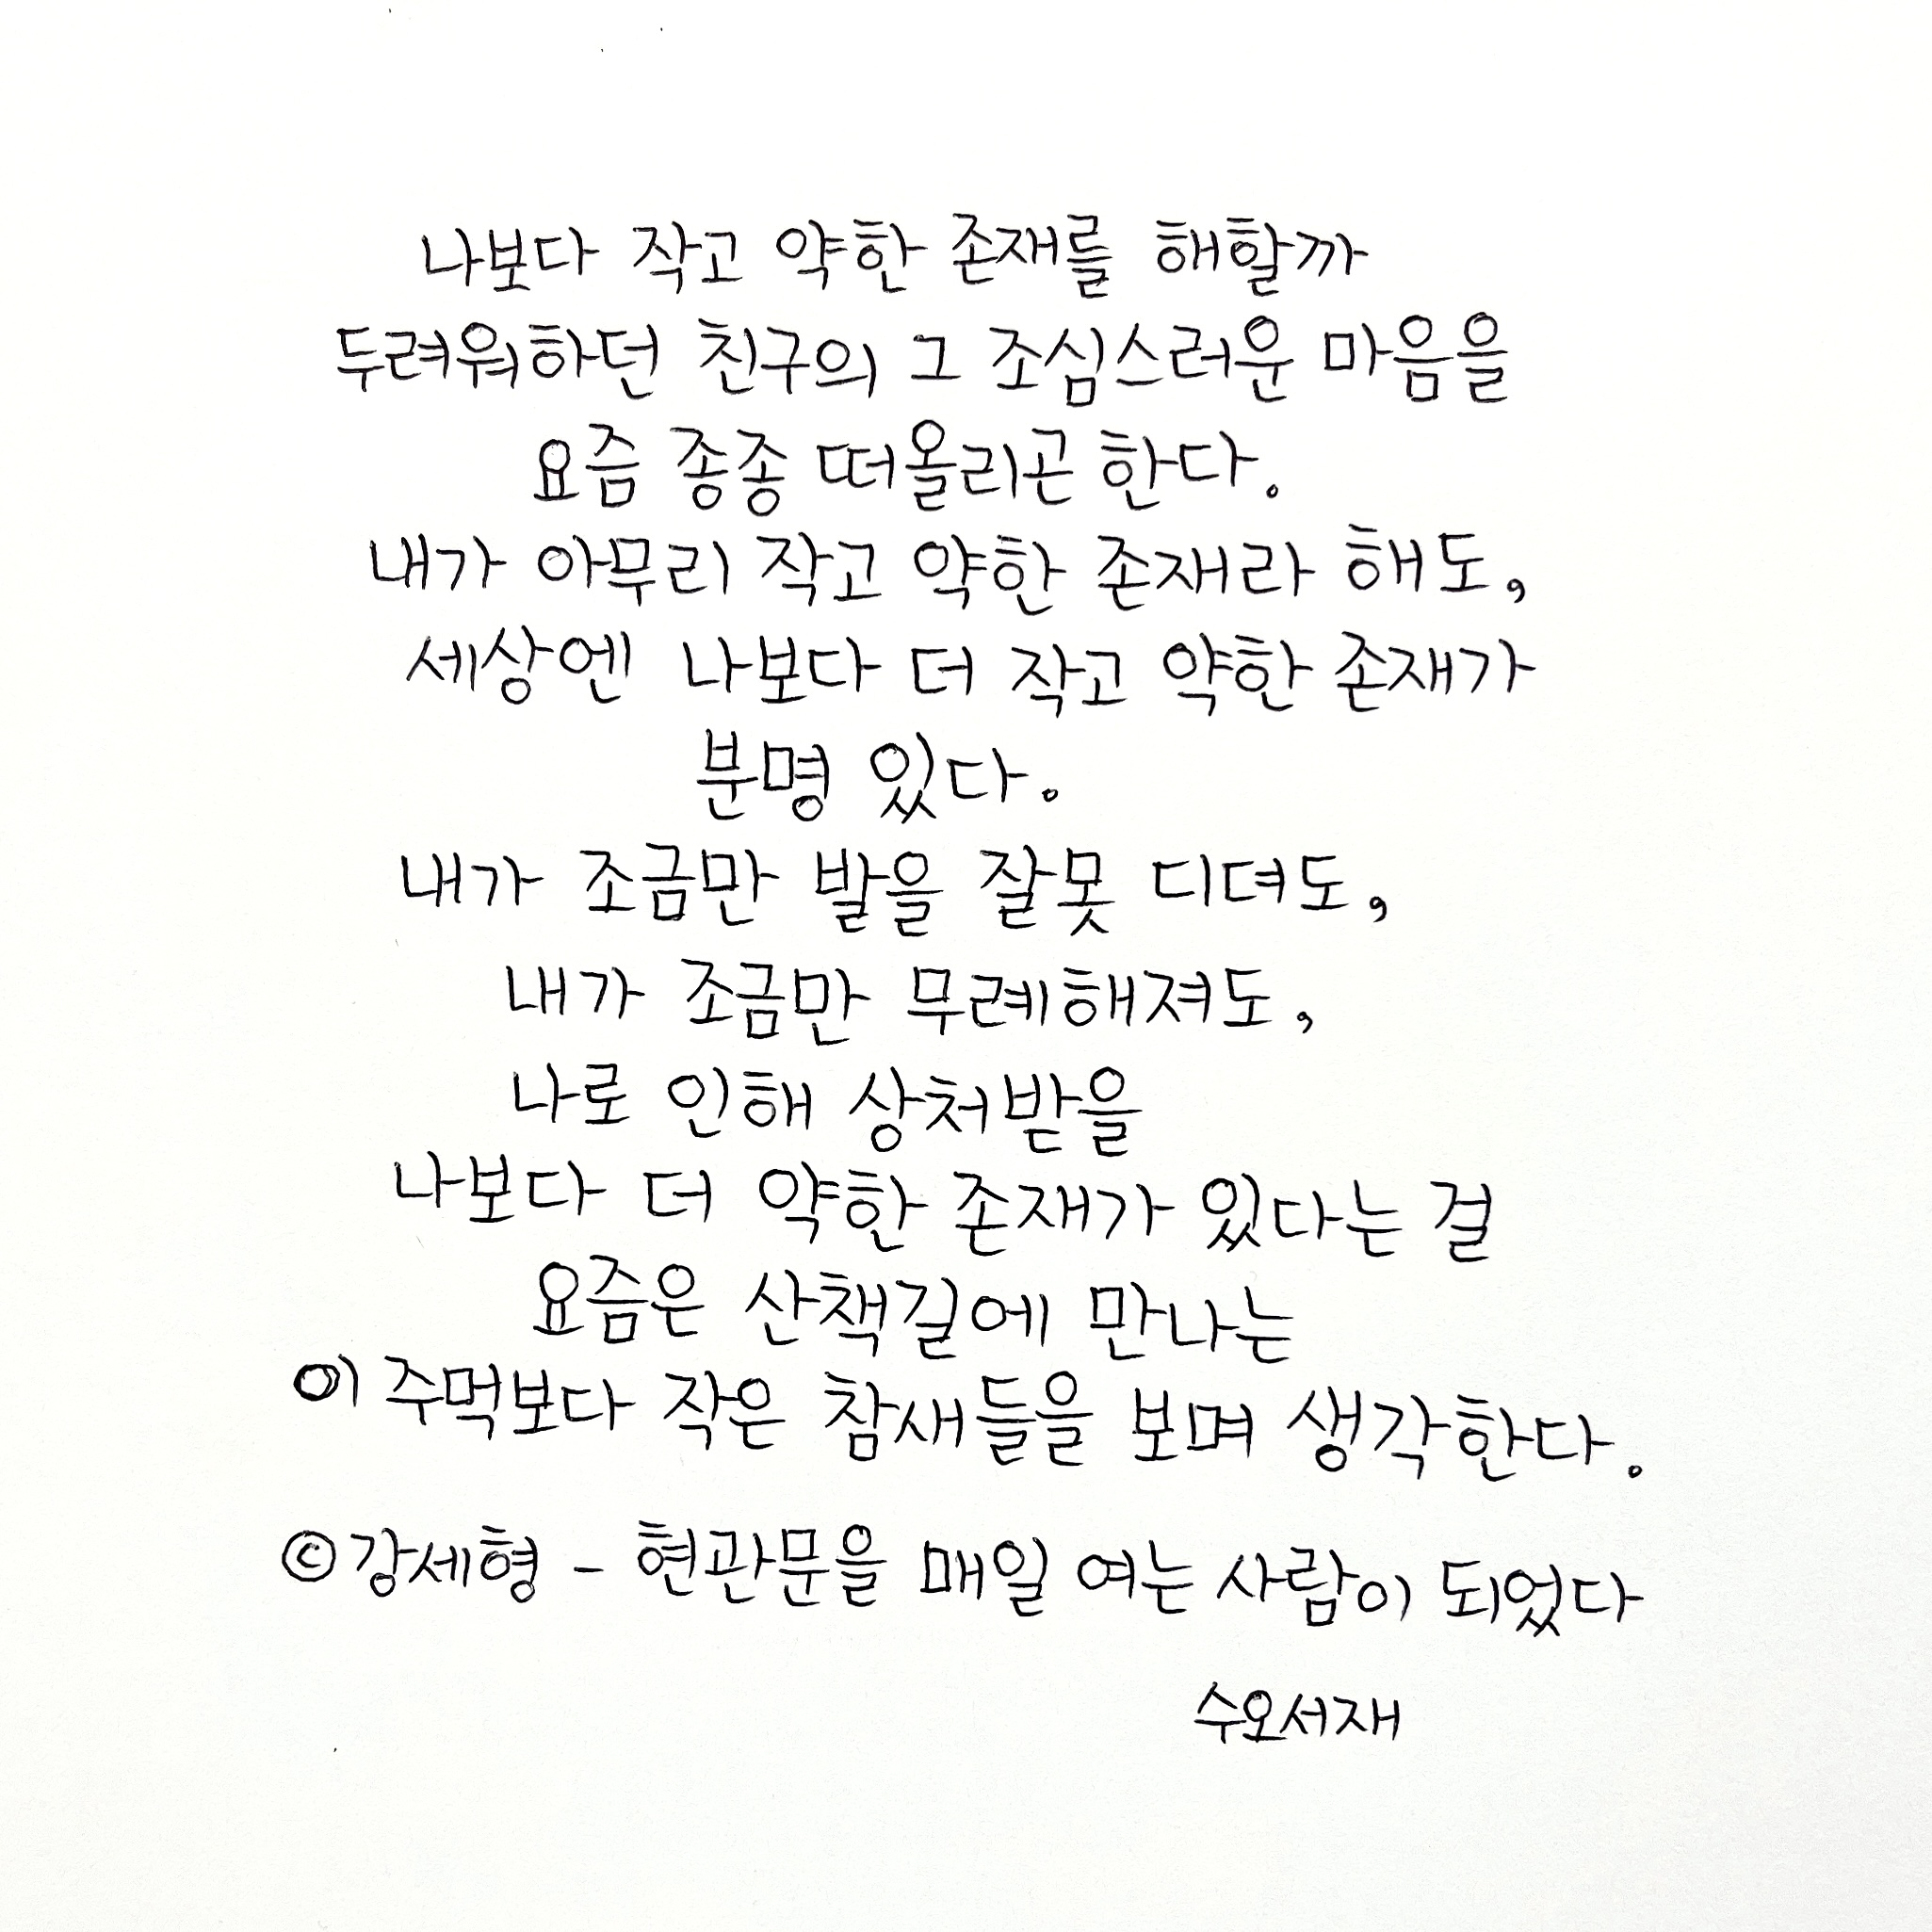 나보다 작고 약한 존재를 해할까
두려워하던 친구의 그 조심스러운 마음을
요즘 종종 떠올리곤 한다.
내가 아무리 작고 약한 존재라 해도,
세상엔 나보다 더 작고 약한 존재가
분명 있다.
내가 조금만 발을 잘못 디뎌도,
내가 조금만 무례해져도,
나로 인해 상처받을
나보다 더 약한 존재가 있다는 걸
요즘은 산책길에 만나는
이 주먹보다 작은 참새들을 보며 생각한다.
©강세형 - 현관문을 매일 여는 사람이 되었다
수오서재